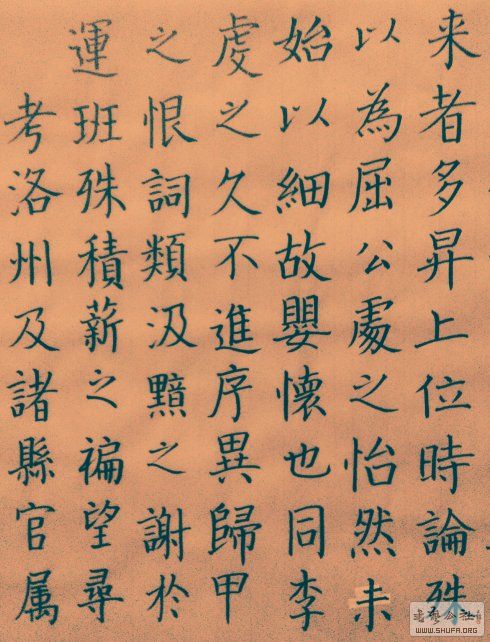 来者多昇上位時論殊
以為屈公處之怡然未
始以細故嬰懷也同李
虔之久不進序異歸甲
之恨詞類汲黯之謝於
運班殊積薪之褊望尋
考洛州及諸縣官属
WWW.SHUFA.ORG